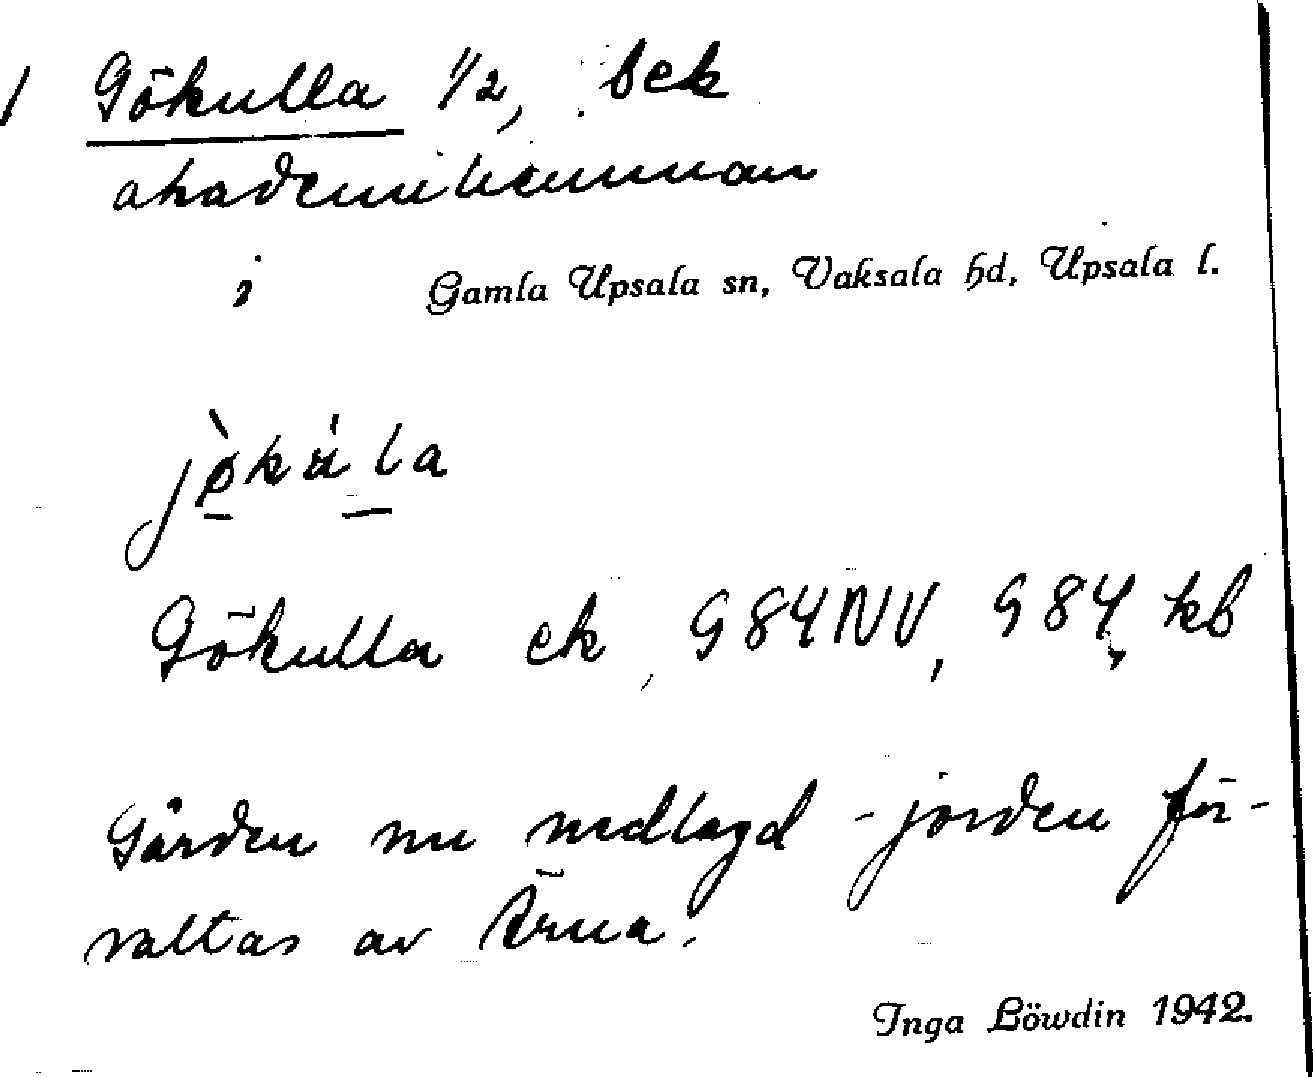 1 Gökulla 1/2, Sck
akademihemman
i Gamla Upsala sn, Vaksala hd, Upsala l.
jø̀kúla
Gökulla ek, G84NV, G84, kb
Gården nu nedlagd - jorden för-
valtas av Ärna.
Inga Löwdin 1942.